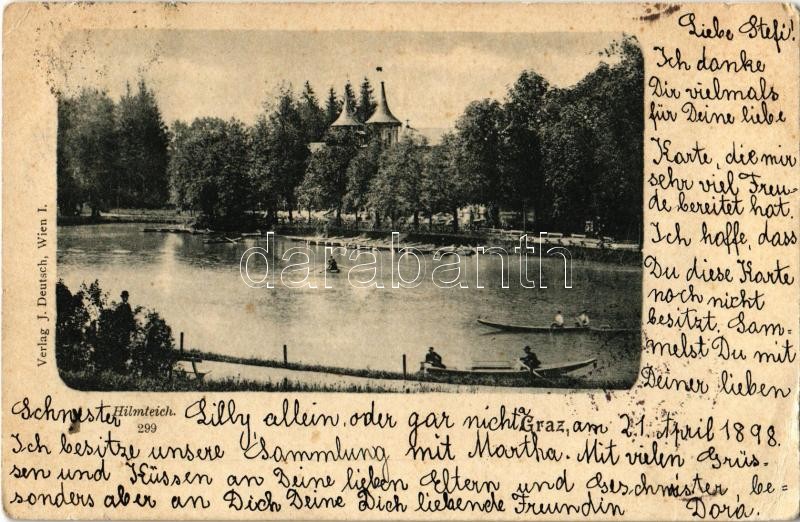 Liebe Stefi!
Ich danke
Dir vielmals
für Deine liebe
Karte, die mir
sehr viel Freu-
de bereitet hat.
Ich hoffe, dass
Du diese Karte
noch nicht
besitzt. Sam-
melst Du mit
Deiner lieben
Schwester Lilly allein, oder gar nicht?
Graz, am 21. April 1898.
Ich besitze unsere Sammlung mit Martha. Mit vielen Grüs-
sen und Küssen an Deine lieben Eltern und Geschwister, be-
sonders aber an Dich Deine Dich liebende Freundin Dora.
Hilmteich.
299
Verlag J. Deutsch, Wien I.
darabanth